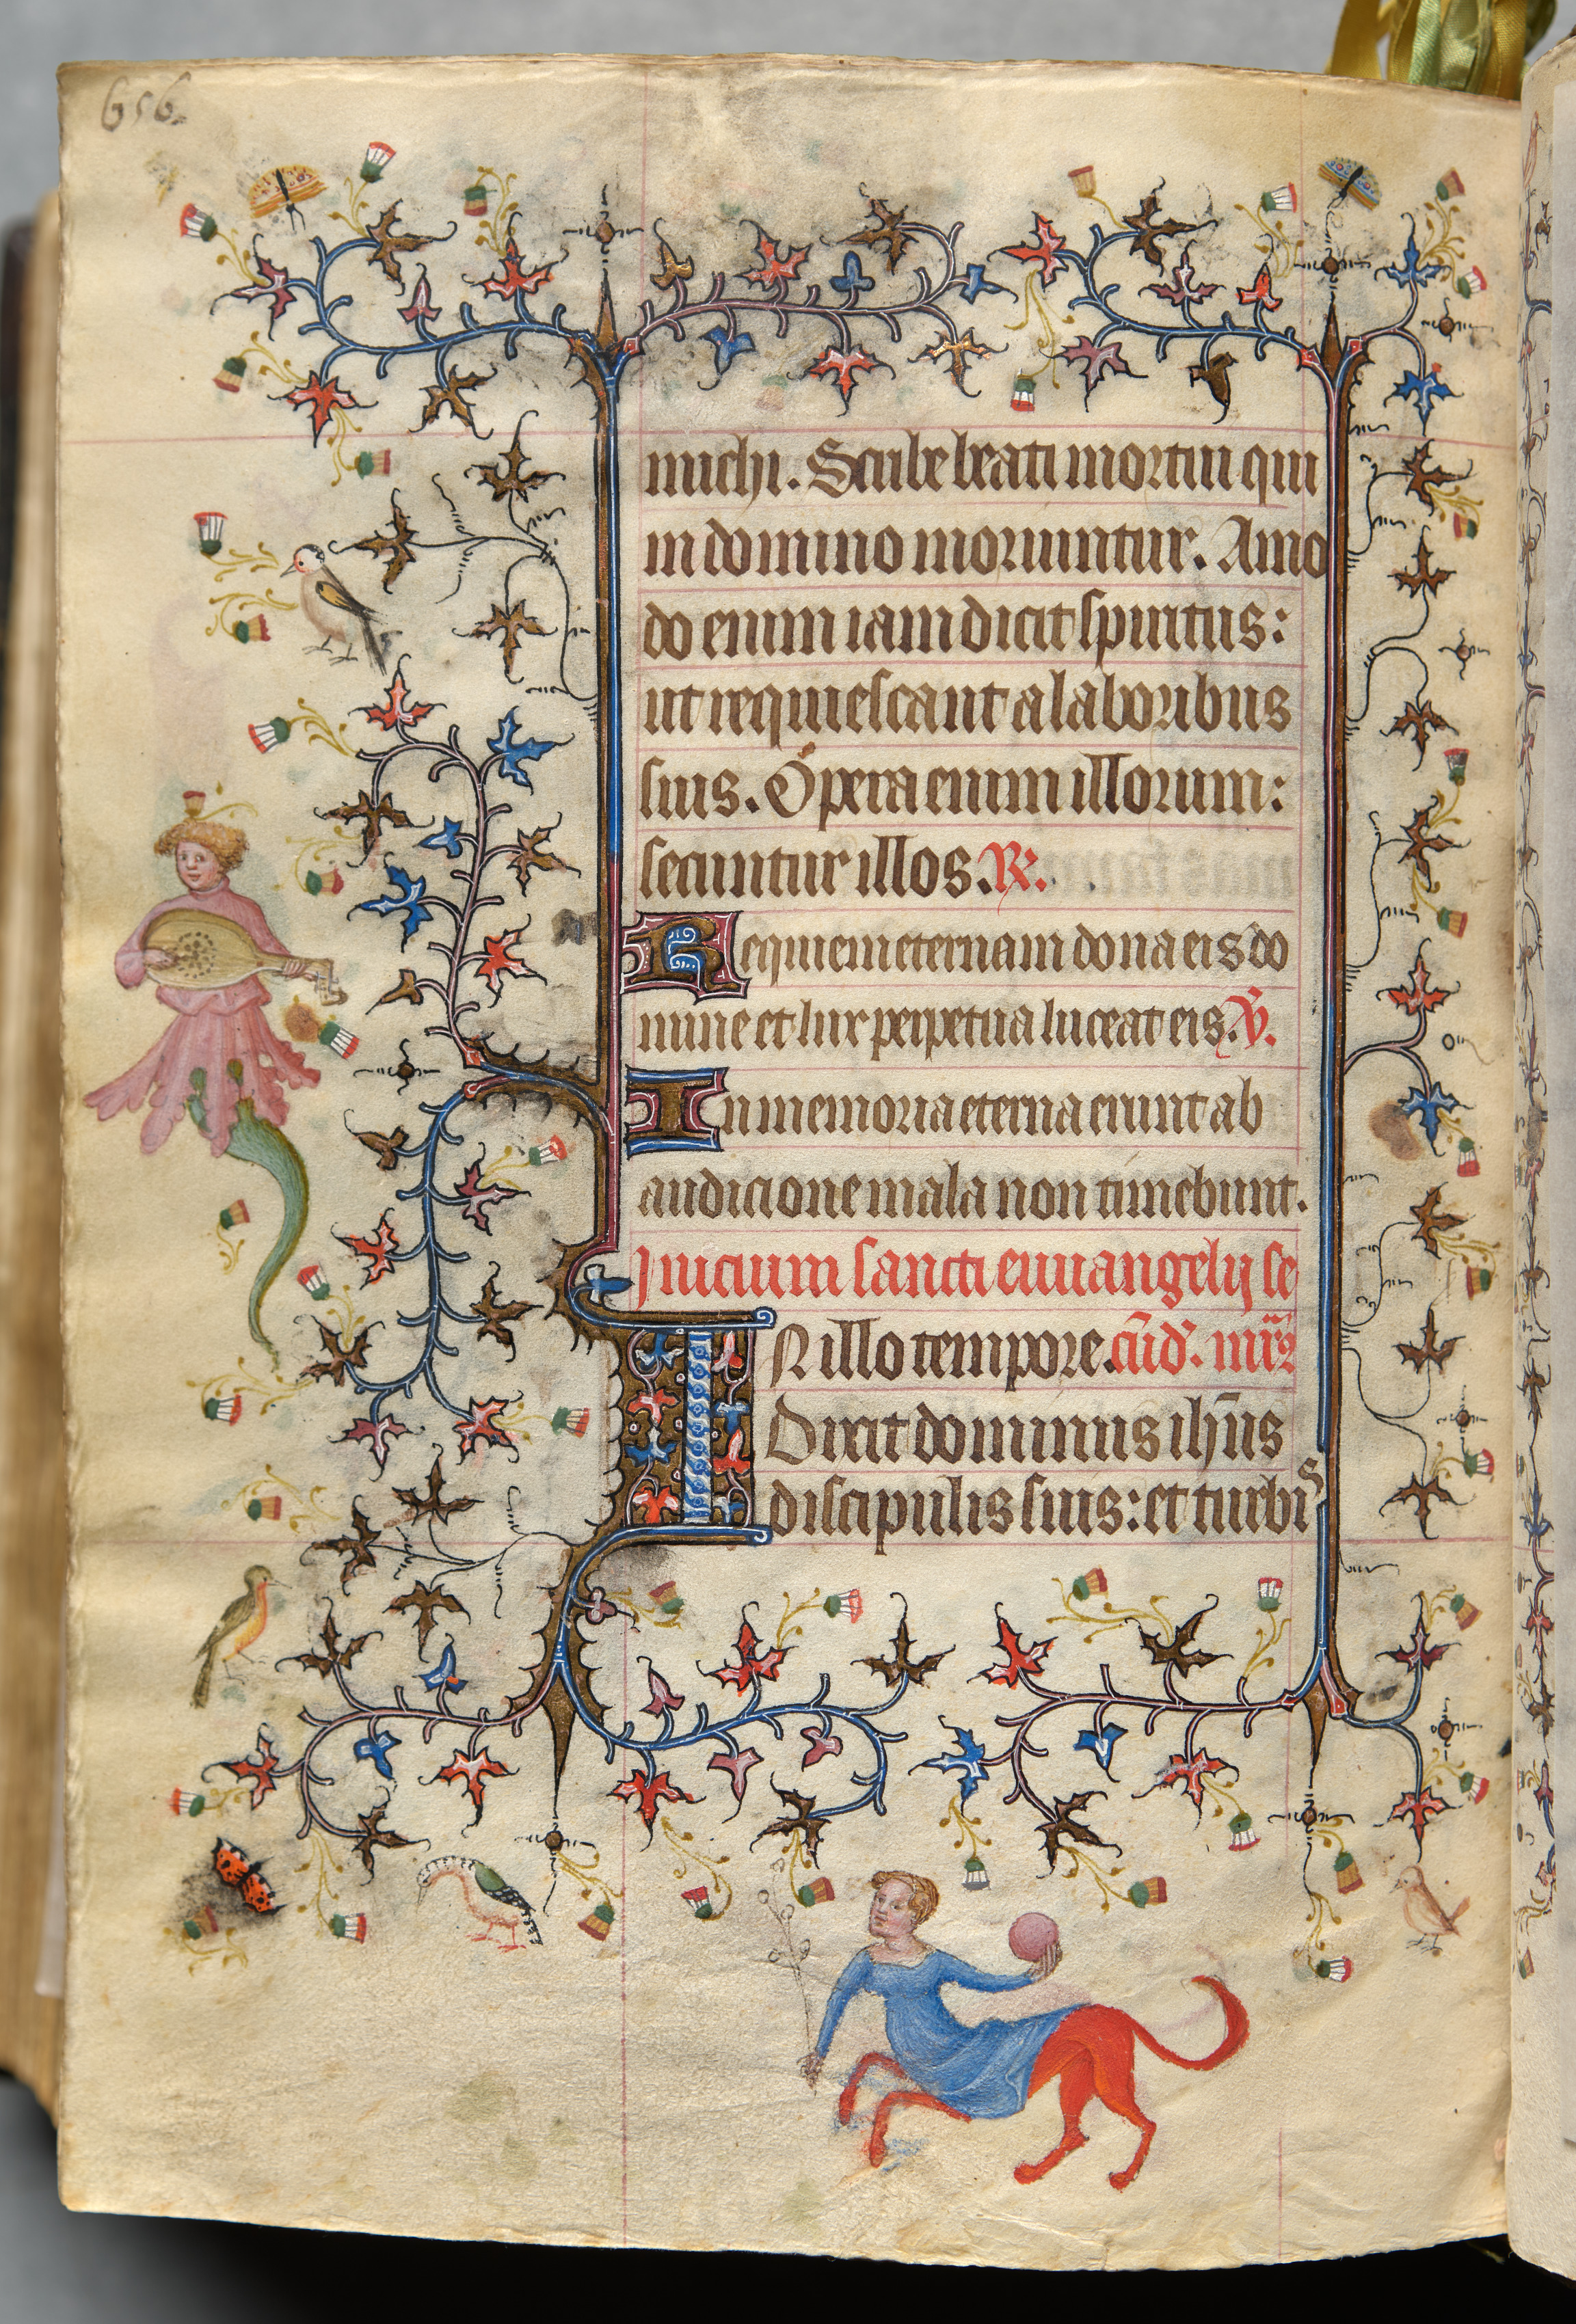 656.
michi. Scribe beati mortui qui
in domino moriuntur. Amo
do enim iam dicit spiritus:
ut requiescant a laboribus
suis. Opera enim illorum:
secuntur illos. R.
Requiem eternam dona eis do
mine et lux perpetua luceat eis. V.
In memoria eterna erunt ab
audicione mala non timebunt.
Inicium sancti euuangelij se
IN illo tempore. cūd'.
Dixit dominus ihūs
discipulis suis: et turbis